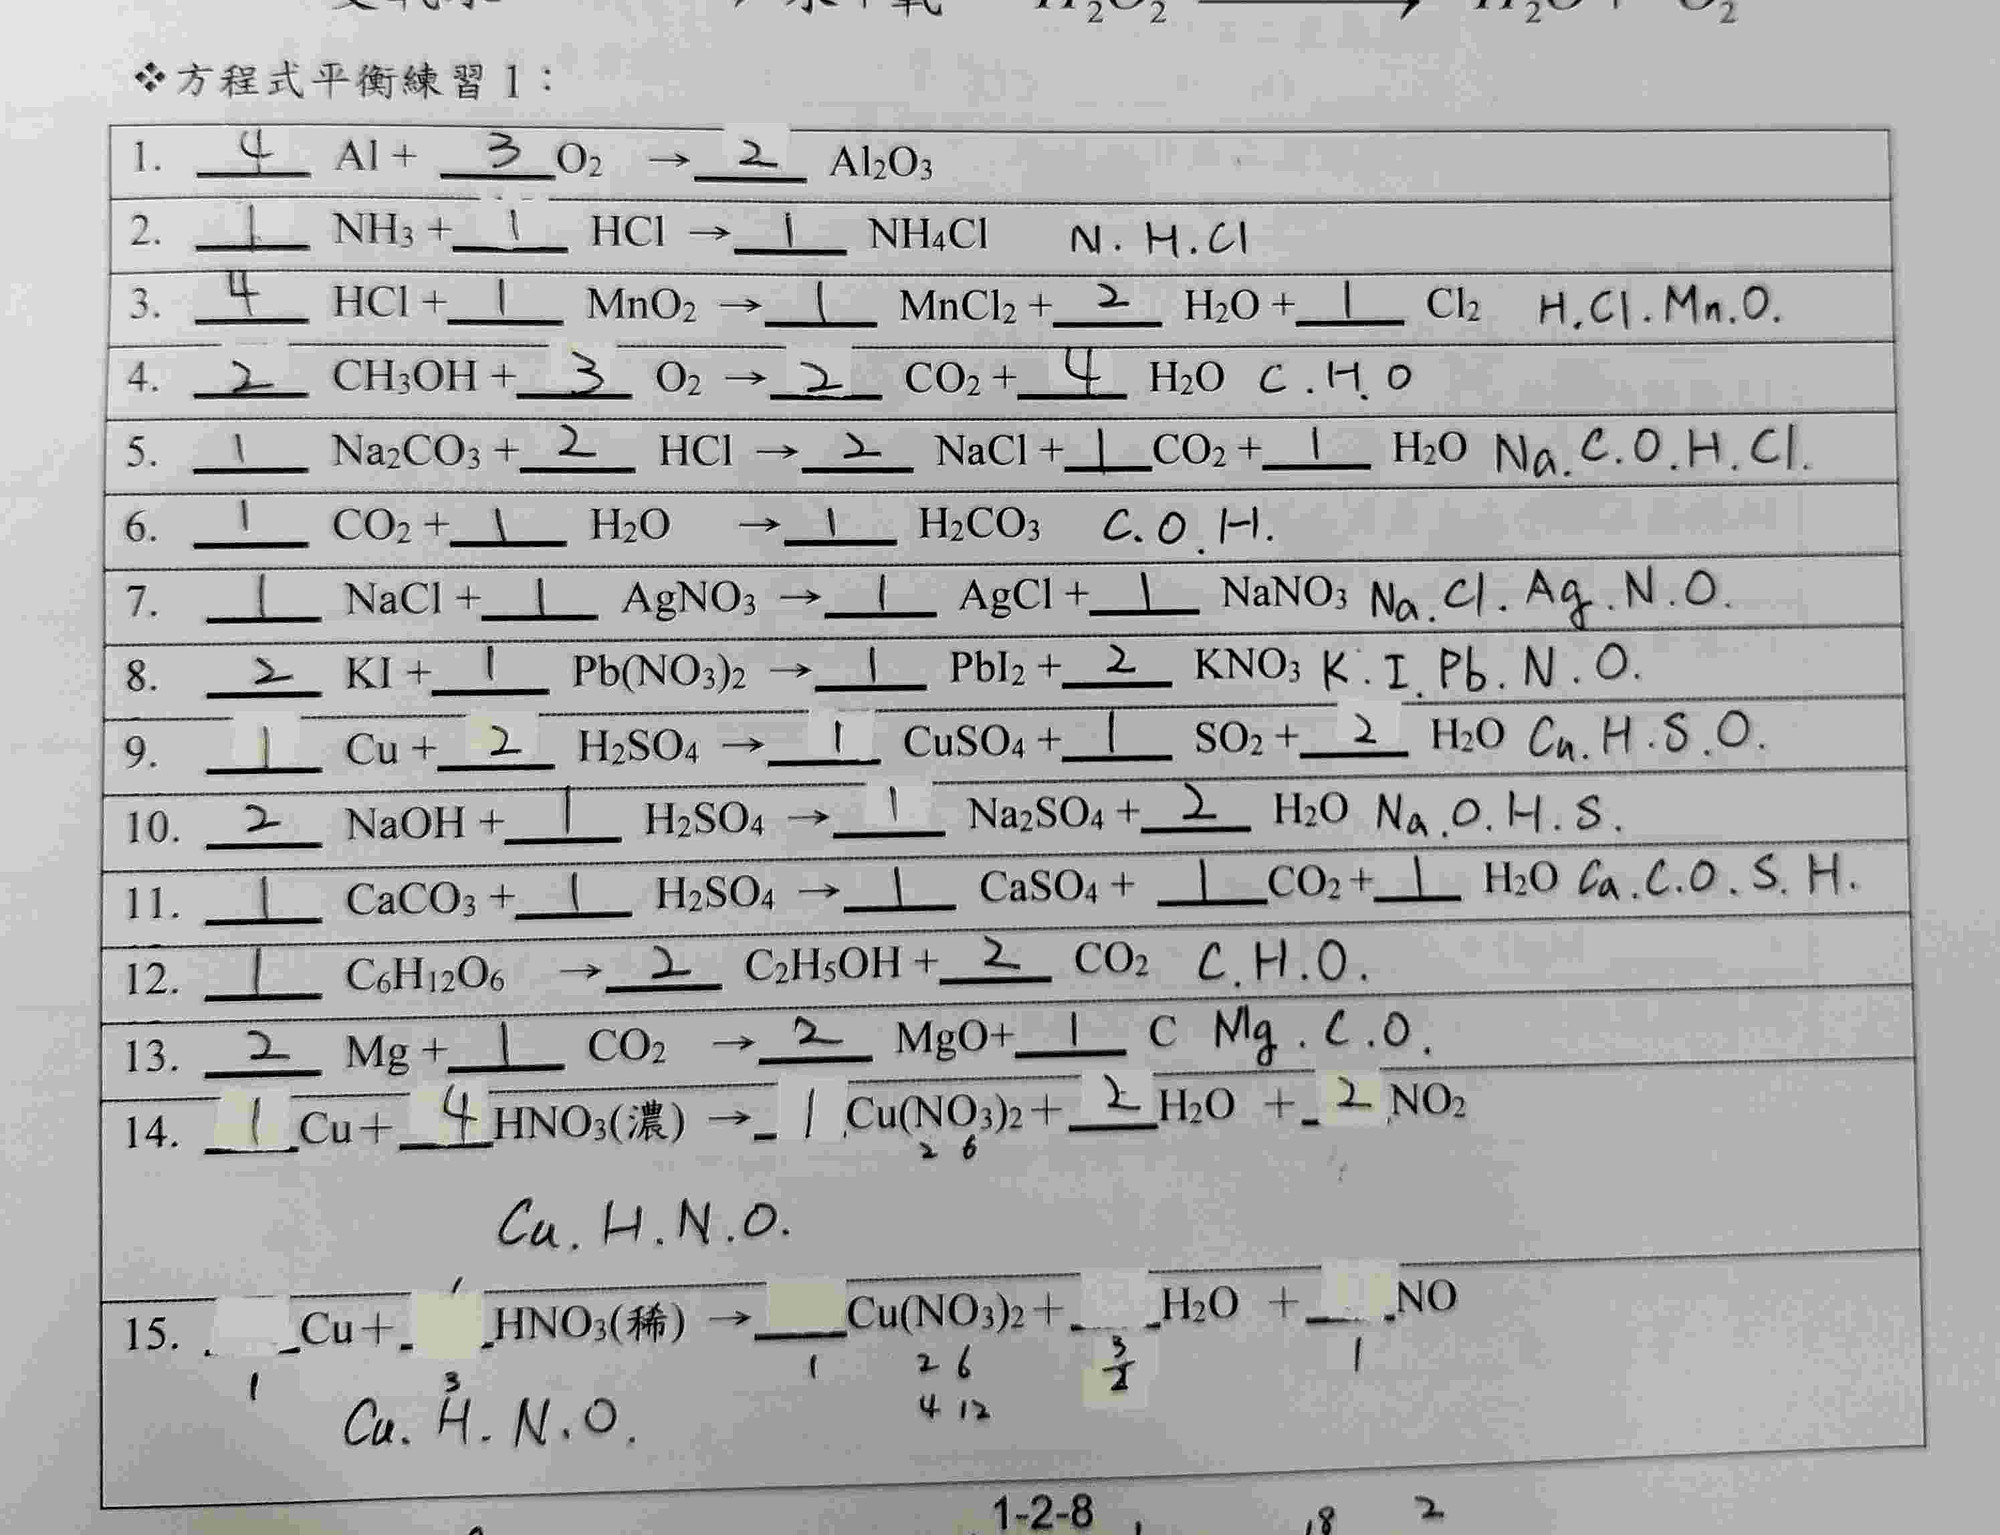 H₂O₂ → H₂O + O₂
❖方程式平衡練習1：
1. 4 Al + 3 O₂ → 2 Al₂O₃
2. 1 NH₃ + 1 HCl → 1 NH₄Cl N.H.Cl
3. 4 HCl + 1 MnO₂ → 1 MnCl₂ + 2 H₂O + 1 Cl₂ H.Cl.Mn.O.
4. 2 CH₃OH + 3 O₂ → 2 CO₂ + 4 H₂O C.H.O
5. 1 Na₂CO₃ + 2 HCl → 2 NaCl + 1 CO₂ + 1 H₂O Na.C.O.H.Cl.
6. 1 CO₂ + 1 H₂O → 1 H₂CO₃ C.O.H.
7. 1 NaCl + 1 AgNO₃ → 1 AgCl + 1 NaNO₃ Na.Cl.Ag.N.O.
8. 2 KI + 1 Pb(NO₃)₂ → 1 PbI₂ + 2 KNO₃ K.I.Pb.N.O.
9. 1 Cu + 2 H₂SO₄ → 1 CuSO₄ + 1 SO₂ + 2 H₂O Cu.H.S.O.
10. 2 NaOH + 1 H₂SO₄ → 1 Na₂SO₄ + 2 H₂O Na.O.H.S.
11. 1 CaCO₃ + 1 H₂SO₄ → 1 CaSO₄ + 1 CO₂ + 1 H₂O Ca.C.O.S.H.
12. 1 C₆H₁₂O₆ → 2 C₂H₅OH + 2 CO₂ C.H.O.
13. 2 Mg + 1 CO₂ → 2 MgO + 1 C Mg.C.O.
14. 1 Cu + 4 HNO₃(濃) → 1 Cu(NO₃)₂ + 2 H₂O + 2 NO₂
2 6
Cu.H.N.O.
15. Cu + HNO₃(稀) → Cu(NO₃)₂ + H₂O + NO
1 3 1 2 6 3/2 1
4 12
Cu.H.N.O.
1-2-8
8 2